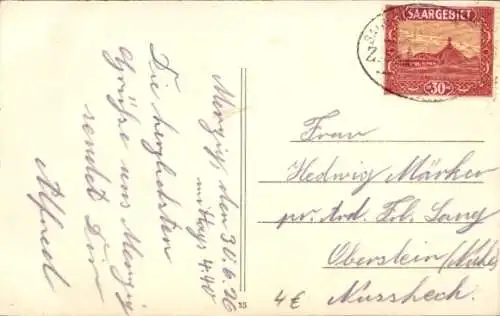 SAARGEBIET
30
Merzig, den 30.6.26
mittags 4.40
Die herzlichsten
Grüße aus Merzig
sendet Dir
Alfred
Frau
Hedwig Märker
pr. Adr. Frl. Lang
Oberstein (Nahe)
Nussheck.
4€
35